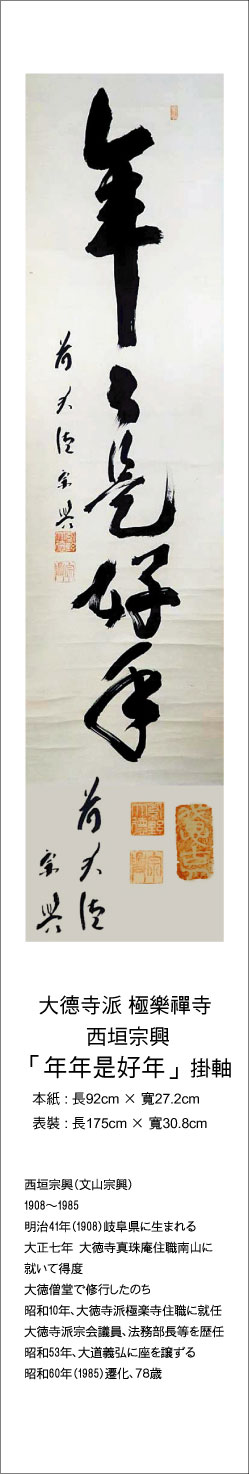 年々是好年
前大徳宗興
前大徳
宗興
大德寺派 極樂禪寺
西垣宗興
「年年是好年」掛軸
本紙：長92cm × 寬27.2cm
表裝：長175cm × 寬30.8cm
西垣宗興（文山宗興）
1908～1985
明治41年（1908）岐阜県に生まれる
大正七年 大徳寺真珠庵住職南山に
就いて得度
大徳僧堂で修行したのち
昭和10年、大徳寺派極楽寺住職に就任
大徳寺派宗会議員、法務部長等を歴任
昭和53年、大道義弘に座を譲ずる
昭和60年（1985）遷化、78歳